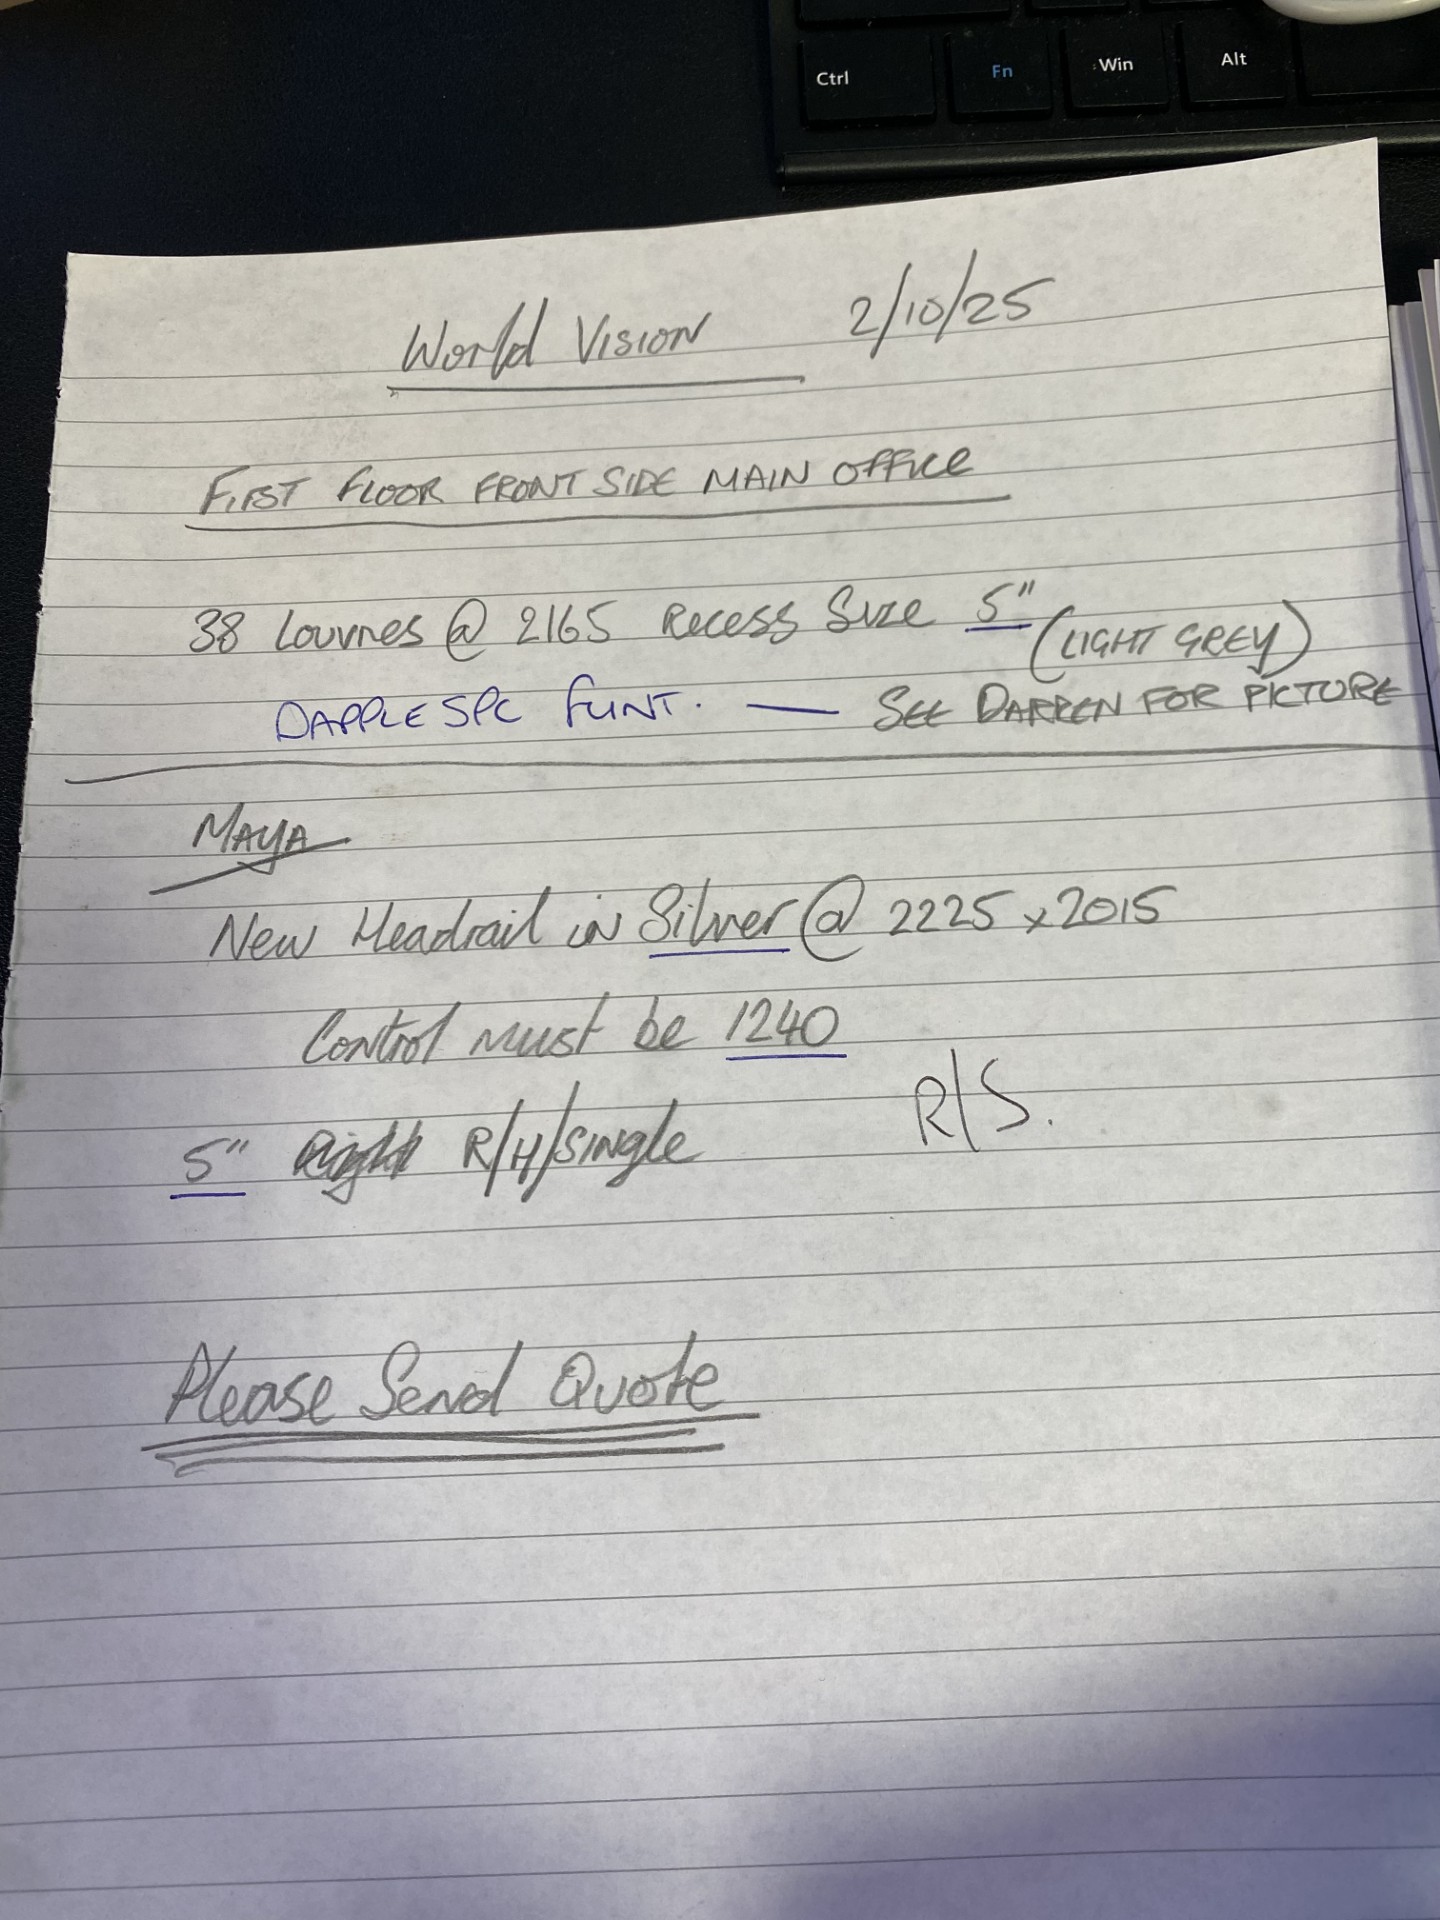 Ctrl Fn Win Alt
World Vision 2/10/25
FIRST FLOOR FRONT SIDE MAIN OFFICE
38 Louvres @ 2165 Recess Size 5" (LIGHT GREY)
DAPPLE SPC FLINT. — SEE DARREN FOR PICTURE
MAYA
New Headrail in Silver @ 2225 x 2015
Control must be 1240
5" Right R/H/Single R/S.
Please Send Quote